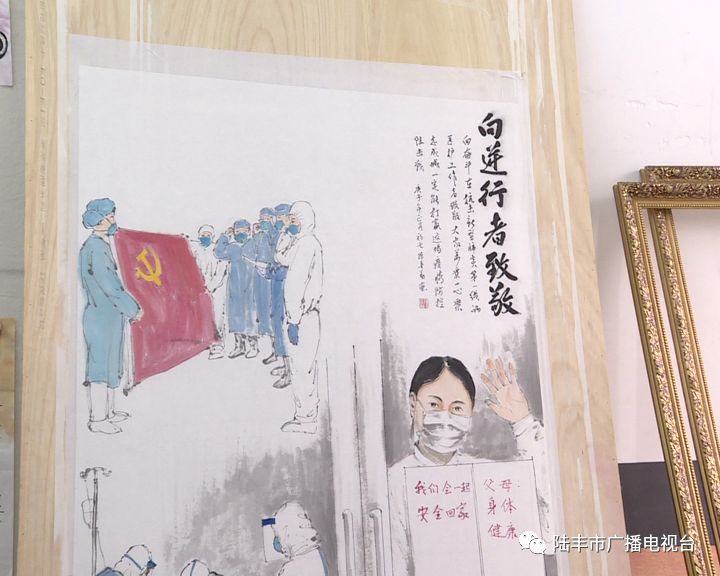 向逆行者致敬
向奋斗在抗击新型肺炎第一线的
医护工作者致敬 大家万众一心 众
志成城一定能打赢这场疫情防控
阻击战
我们会一起
安全回家
父母：
身体
健康
陆丰市广播电视台